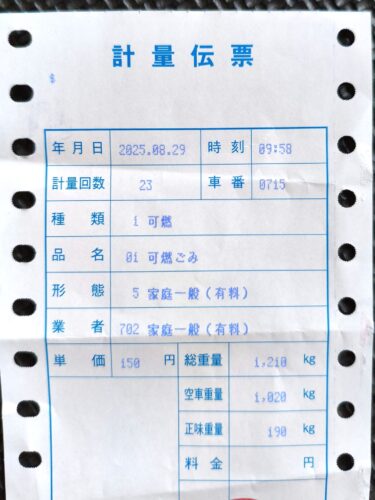 計量伝票
$
年月日 2025.08.29 時刻 09:58
計量回数 23 車番 0715
種類 1 可燃
品名 01 可燃ごみ
形態 5 家庭一般(有料)
業者 702 家庭一般(有料)
単価 150 円 総重量 1,210 kg
空車重量 1,020 kg
正味重量 190 kg
料金 円